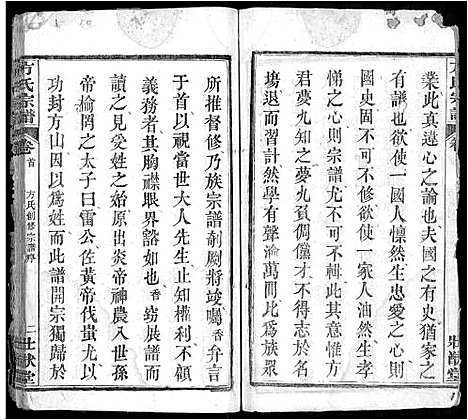 業此真違心之論也夫國之有史猶家之
有譜也欲使一國人懍然生忠愛之心則
國史不可不作欲使一家人油然生孝
悌之心則宗譜尤不可不修其意惟方
君夢九知之夢九負倜儻才不得志於名
塲退而習計然學有聲滿萬間此爲族
所推督修乃族宗譜剞劂將竣囑香弁言
香以此視當世大人先生止知權利不
義務者其胸襟眼界謚如也香窃展譜而
讀之見受姓之始原出炎帝神農八世
帝榆罔之太子曰雷公佐黃帝伐蚩尤以
功封方山因以爲姓而此譜開宗獨歸於
方氏宗譜
卷首
方氏創修宗譜序
二
壯猷堂